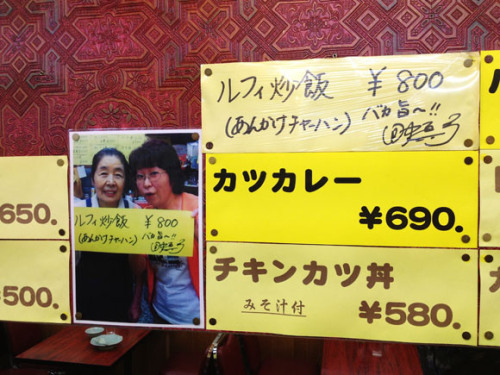 ルフィ炒飯 ￥800
(あんかけチャーハン) バカ旨〜!!
カツカレー
￥690.
チキンカツ丼
みそ汁付
￥580.
650.
500.
ルフィ炒飯 ￥800
(あんかけチャーハン) バカ旨〜!!